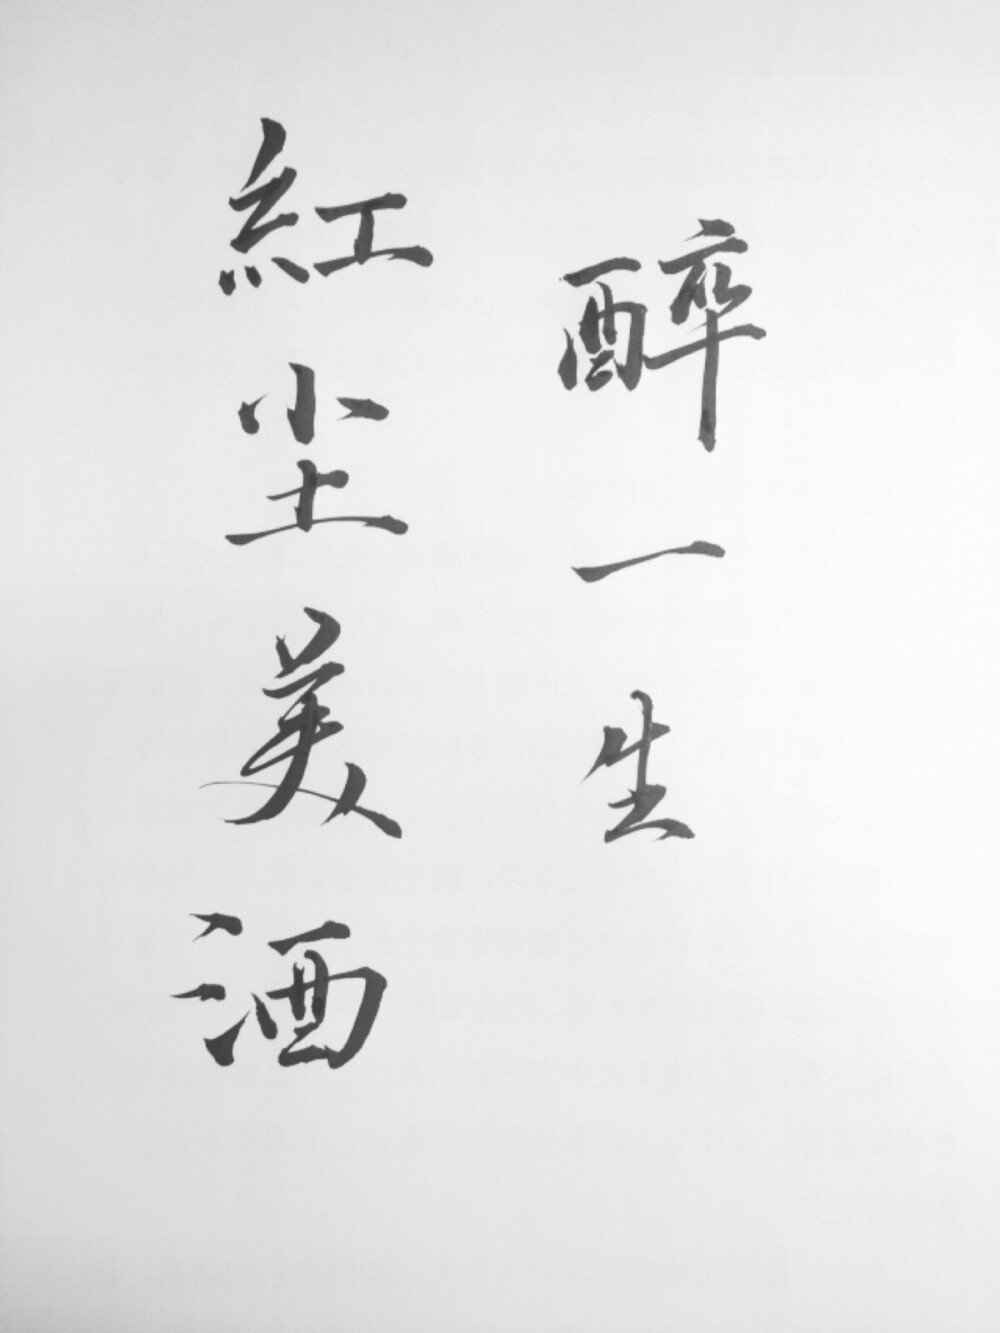 紅尘美酒
醉一生